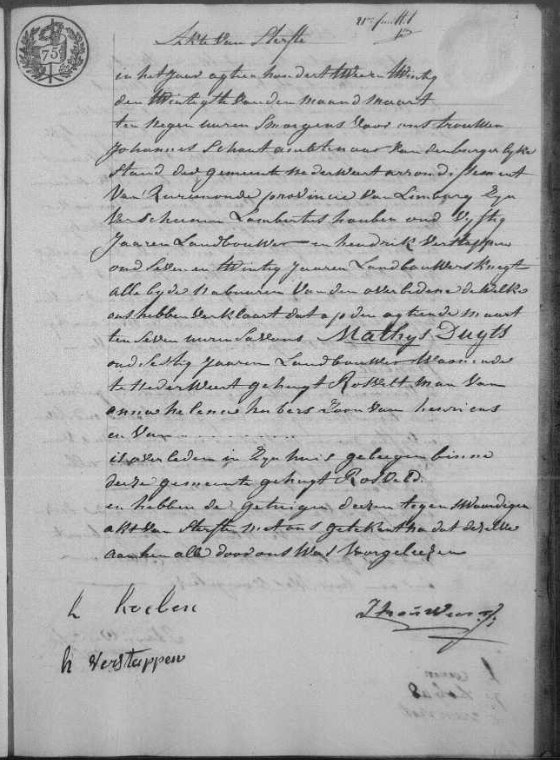 75
Akte van Sterfte
in het jaar agtien hondert twee en twintig
den twintigste van den maand maart
ten negen uuren smorgens voor ons trouwen
Johannes Schout ambtenaar van den burgerlyke
Stand der gemeente nederweert arrondissement
van Ruremonde provincie van Limburg Zyn
verscheenen Lambertus houben oud vyftig
Jaaren Landbouwer en hendrik verstappen
oud Seven en twintig Jaaren Landbouwersknegt
alle byde nabuuren van den overledene dewelke
ons hebben verklaart dat op den agtiende maart
ten Seven uuren savons Mathys Duyts
oud Sestig Jaaren Landbouwer Woonende
te nederweert gehugt Rosvelt man van
anna helena herbers Zoon van henricus
en van
is overleden in Zyn huis gelegen binne
deeze gemeente gehugt Rosveld
en hebben de getuigen deezen tegenswoordigen
akt van Sterften met ons getekent na dat dezelve
aan hen alle door ons was voorgeleezen
h verstappen